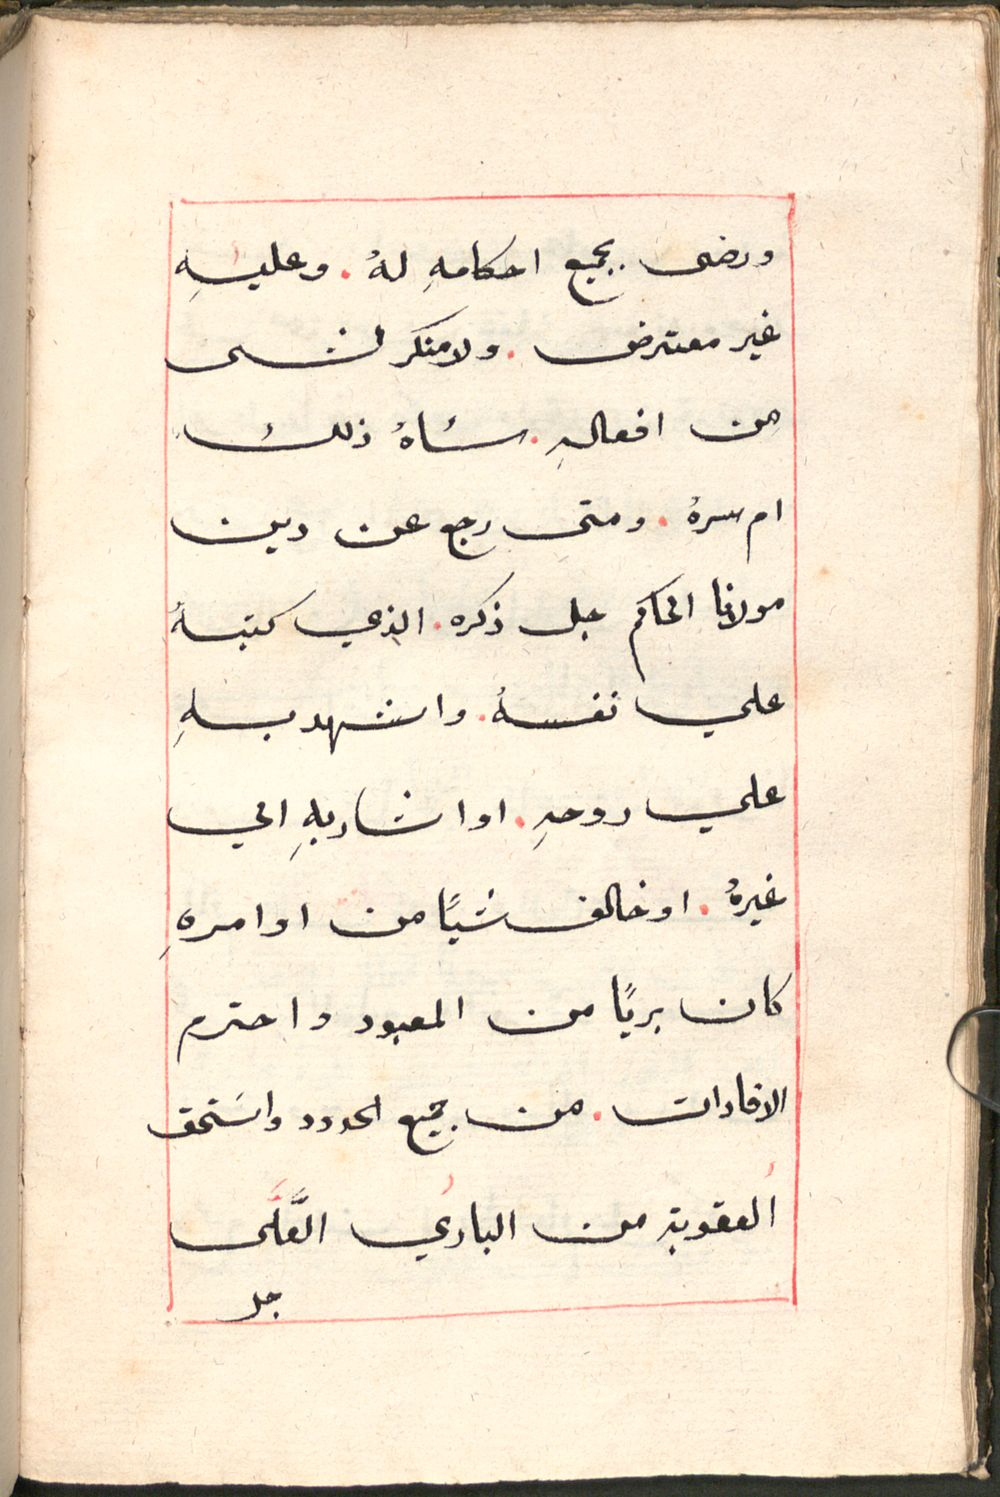 ورضى بجميع احكامهِ لهُ. وعليهِ
غير معترض. ولا منكر لشى
من افعالهِ. سأهُ ذلك
ام سرهُ. ومتى رجع عن دين
مولانا الحاكم جل ذكره. الذي كتبهُ
علي نفسهُ. واشهد بهِ
علي روحهِ. او اشار بهِ الي
غيرهُ. او خالف شيًا من اوامرهِ
كان بريًا من المعبود واحترم
الافادات. من جميع الحدود واستَحق
العقوبة من الباري العَّلَى
جل